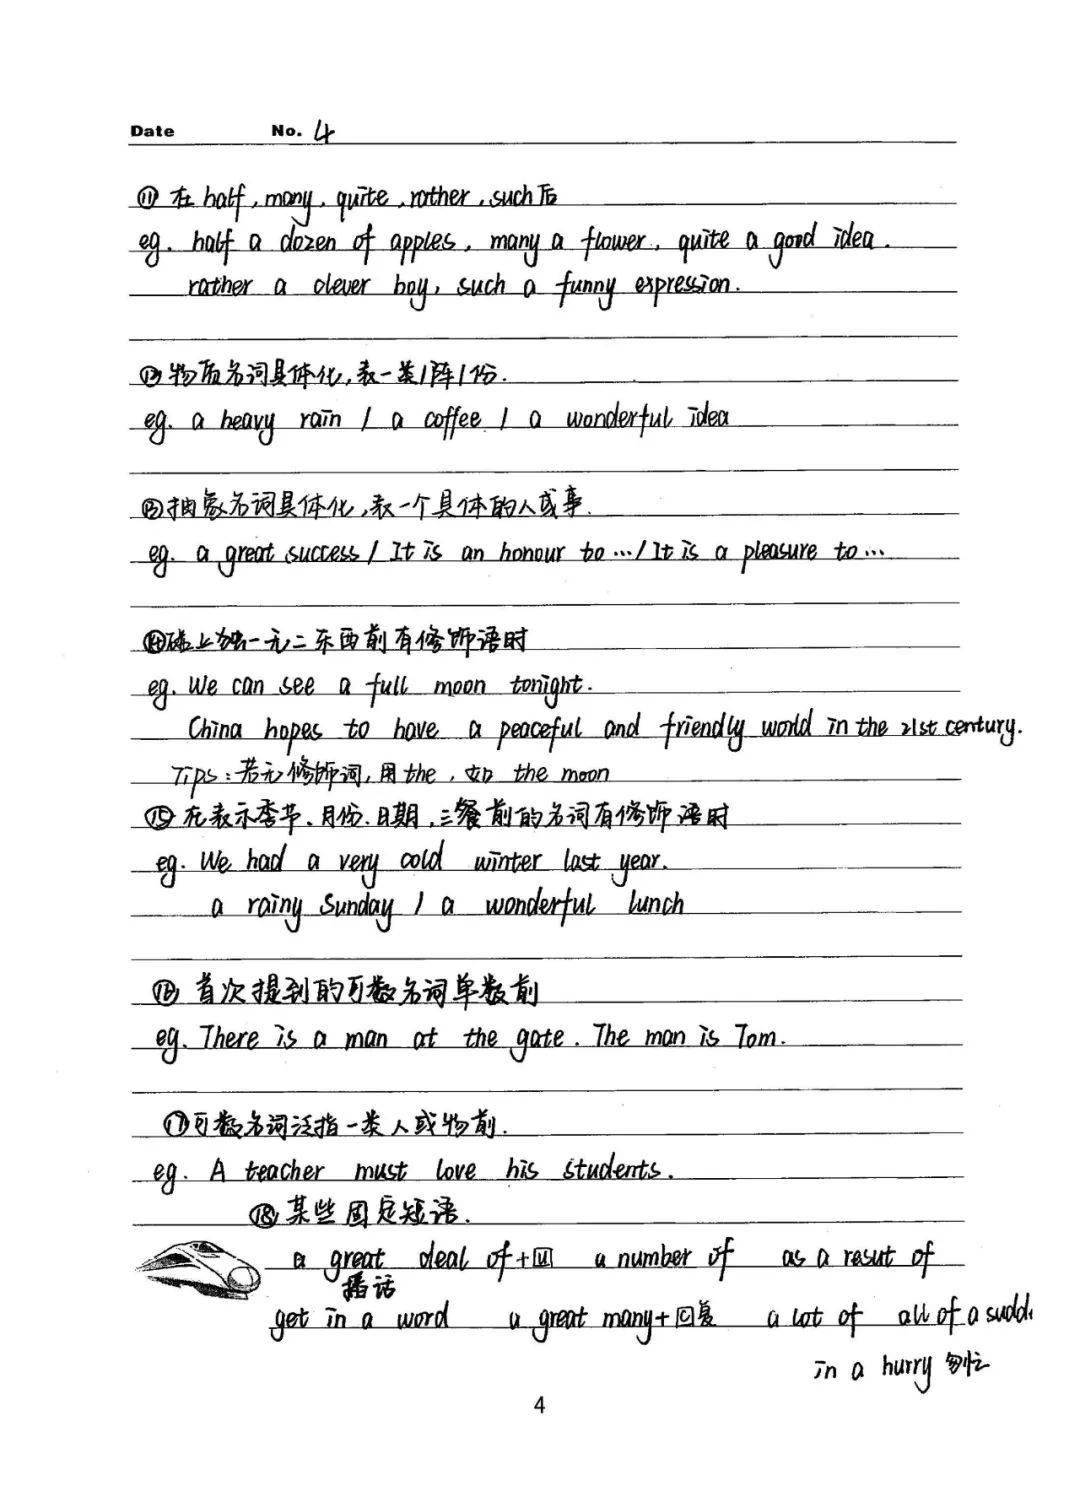 Date No. 4
⑪ 在 half, many, quite, rather, such后
eg. half a dozen of apples, many a flower, quite a good idea.
rather a clever boy, such a funny expression.
⑫ 物质名词具体化,表一类/阵/份.
eg. a heavy rain / a coffee / a wonderful idea
⑬抽象名词具体化,表一个具体的人或事.
eg. a great success / It is an honour to … / It is a pleasure to …
⑭碰上独一无二东西前有修饰语时
eg. We can see a full moon tonight.
China hopes to have a peaceful and friendly world in the 21st century.
Tips:若无修饰词,用the,如 the moon
⑮在表示季节、月份、日期,三餐前的名词有修饰语时
eg. We had a very cold winter last year.
a rainy Sunday / a wonderful lunch
⑯ 首次提到的可数名词单数前
eg. There is a man at the gate. The man is Tom.
⑰可数名词泛指一类人或物前.
eg. A teacher must love his students.
⑱某些固定短语.
a great deal of+U a number of as a result of
插话
get in a word a great many+C复 a lot of all of a sudd
in a hurry 匆忙
4